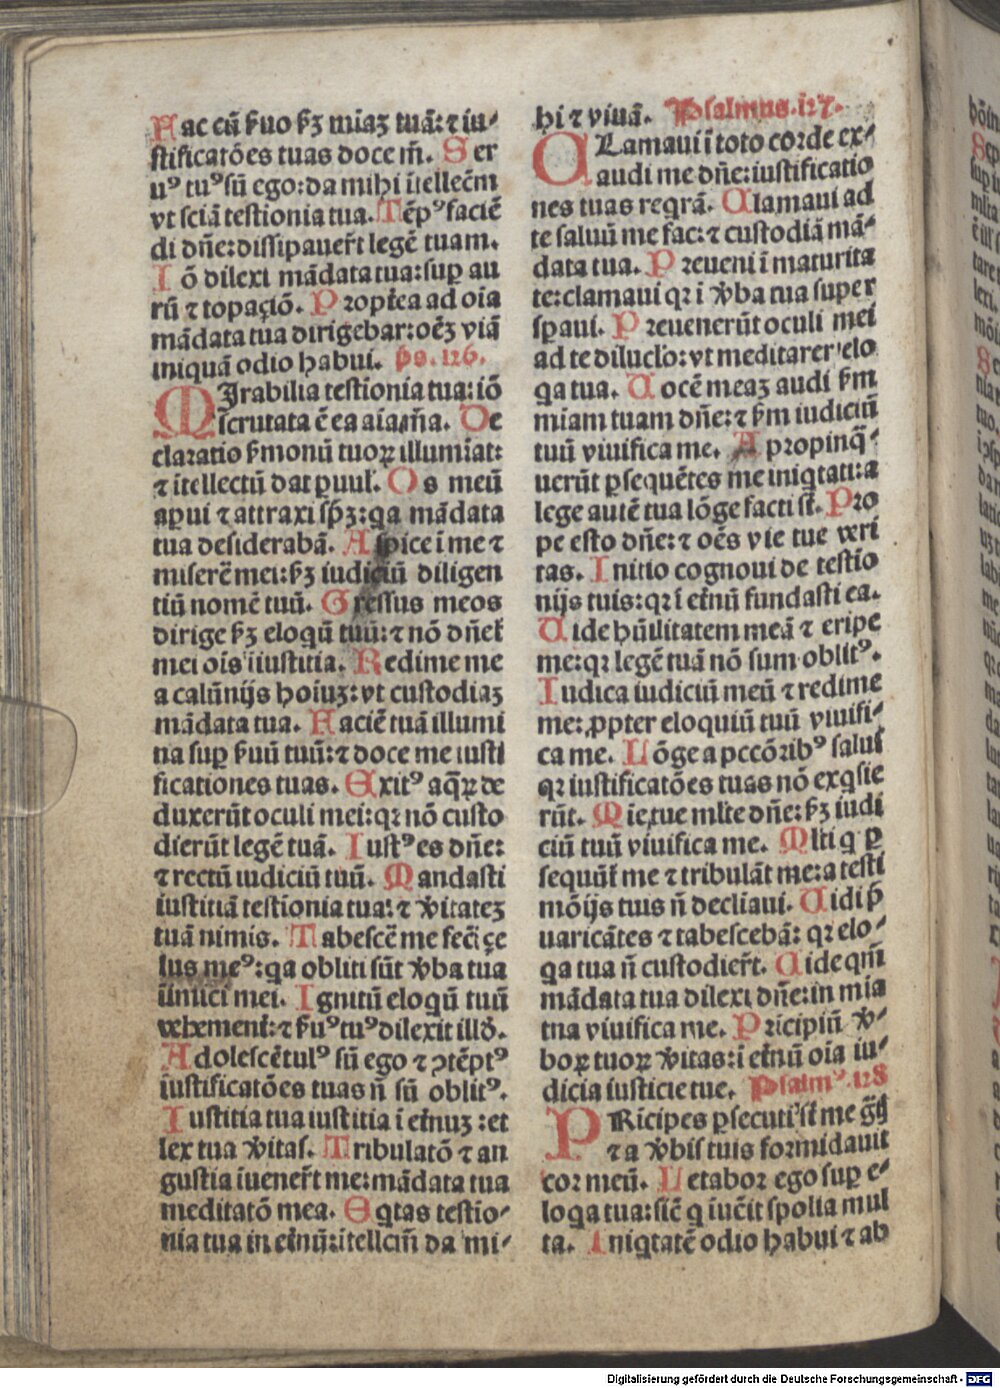 Fac cū ẜuo ẜꝫ miaꝫ tuā: ⁊ iu⸗
stificatōes tuas doce m̄. Ser
uꝰ tuꝰ sū ego: da mihi ītellec̄m
vt sciā testionia tua. Tēpꝰ faciē
di dn̄e: dissipauer̄t legē tuam.
Iō dilexi mādata tua: suꝑ au
rū ⁊ topaçiō. Propt̄ea ad oīa
mādata tua dirigebar: oēꝫ viā
iniquā odio habui. ps. 126.
MIrabilia testionia tua: iō
scrutata ē ea aīa m̄a. De
claratio ẜmonū tuoꝝ illumīat:
⁊ itellectū dat ꝑuul̓. Os meū
aꝑui ⁊ attraxi sp̄ꝫ: qa mādata
tua desiderabā. Aspice i me ⁊
miserē mei: ẜꝫ iudiciū diligen
tiū nomē tuū. Gressus meos
dirige ẜꝫ eloqū tuū: ⁊ nō dn̄et̄
mei oīs iiustitia. Redime me
a calūnijs hoīuꝫ: vt custodiaꝫ
mādata tua. Faciē tuā illumi
na suꝑ ẜuū tuū: ⁊ doce me iusti
ficationes tuas. Exitꝰ aq̄ꝝ de
duxerūt oculi mei: qꝛ nō custo
dierūt legē tuā. Iustꝰ es dn̄e:
⁊ rectū iudiciū tuū. Mandasti
iustitiā testionia tua: ⁊ v̄itateꝫ
tuā nimis. Tabescē me feci çe
lus meꝰ: qa obliti sūt v̄ba tua
iīmici mei. Ignitū eloqū tuū
vehement̄: ⁊ ẜuꝰ tuꝰ dilexit illō.
Adolescētulꝰ sū ego ⁊ ꝯtēptꝰ
iustificatōes tuas n̄ sū oblitꝰ.
Iustitia tua iustitia i et̄nuꝫ: et
lex tua v̄itas. Tribulatō ⁊ an
gustia iuener̄t me: mādata tua
meditatō mea. Eqtas testio⸗
nia tua in et̄nū: itellcīn da mi⸗
hi ⁊ viuā. Psalmus. 127.
CLamaui i toto corde ex⸗
audi me dn̄e: iustificatio
nes tuas reqrā. Clamaui ad
te saluū me fac: ⁊ custodiā mā⸗
data tua. Preueni i maturita
te: clamaui qꝛ i v̄ba tua super
speraui. Preuenerūt oculi mei
ad te diluclo: vt meditarer elo
qa tua. Uocē meaꝫ audi ẜm
miam tuam dn̄e: ⁊ ẜm iudiciū
tuū viuifica me. Apropinq̄⸗
uerūt ꝑsequētes me iniqtati: a
lege autē tua lōge facti st̄. Pro
pe esto dn̄e: ⁊ oēs vie tue veri
tas. Initio cognoui de testio
nijs tuis: qꝛ i et̄nū fundasti ea.
Uide hūilitatem meā ⁊ eripe
me: qꝛ legē tuā nō sum oblitꝰ.
Iudica iudiciū meū ⁊ redime
me: ꝓpter eloquiū tuū viuifi⸗
ca me. Lōge a pccōribꝰ salus
qꝛ iustificatōes tuas nō exqsie
rūt. Mie tue mlte dn̄e: ẜꝫ iudi
ciū tuū viuifica me. Mlti q ꝑ
sequūt̄ me ⁊ tribulāt me: a testi
mōijs tuis n̄ decliaui. Uidi p̄
uaricātes ⁊ tabescebā: qꝛ elo⸗
qa tua n̄ custodier̄t. Uide qm̄
mādata tua dilexi dn̄e: in mia
tua viuifica me. Pricipiū v̄⸗
boꝝ tuoꝝ v̄itas: i et̄nū oīa iu⸗
dicia iusticie tue. Psalmꝰ. 128
PRicipes ꝑsecuti st̄ me ḡꝫ
⁊ a v̄bis tuis formidauit
cor meū. Letabor ego suꝑ e⸗
loqa tua: sic̄ q iuēit spolia mul
ta. Iniqtatē odio habui ⁊ ab
Digitalisierung gefördert durch die Deutsche Forschungsgemeinschaft - DFG